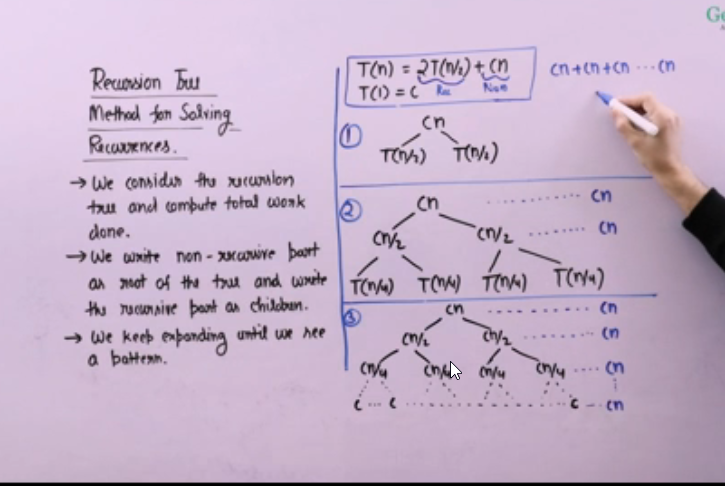 Recursion Tree
Method for Solving
Recurrences.
→ We consider the recursion
tree and compute total work
done.
→ We write non-recursive part
as root of the tree and write
the recursive part as children.
→ We keep expanding until we see
a pattern.
T(n) = 2T(n/2) + cn
T(1) = C
Rec
Non
cn+cn+cn ... cn
1
cn
T(n/2) T(n/2)
2
cn ......... cn
cn/2 cn/2 ....... cn
T(n/4) T(n/4) T(n/4) T(n/4)
3
cn ......... cn
cn/2 cn/2 ....... cn
cn/4 cn/4 cn/4 cn/4 .... cn
c ... c ......... c ... cn